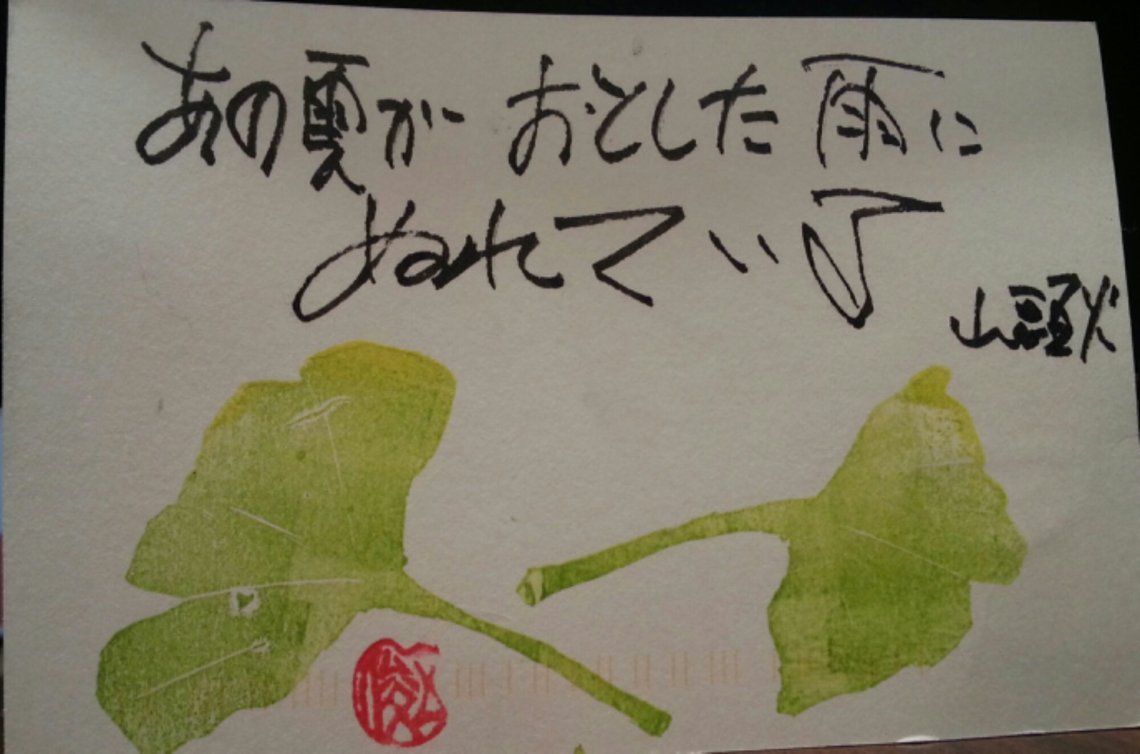 あの雲が おとした雨に
ぬれている
山頭火